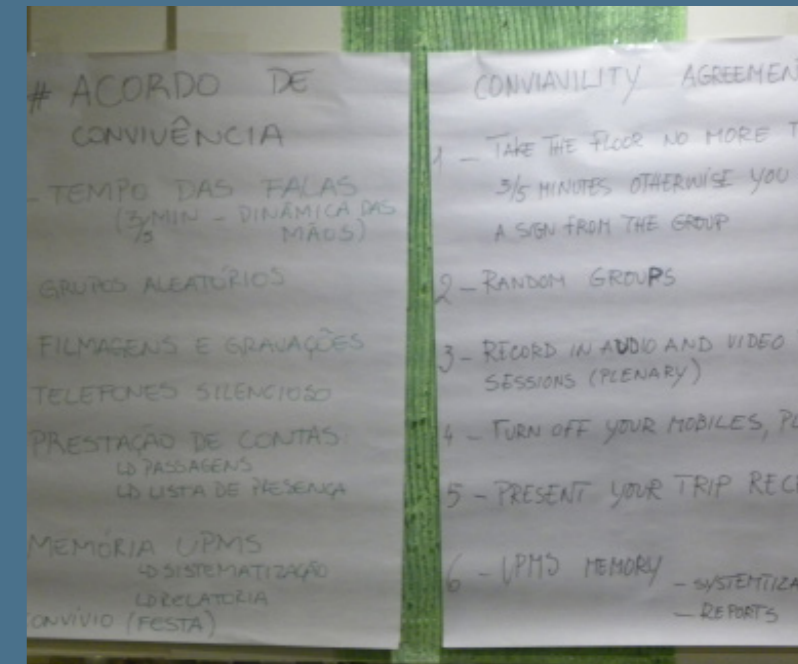 # ACORDO DE
CONVIVÊNCIA
- TEMPO DAS FALAS
(3/5 MIN - DINÂMICA DAS
MÃOS)
GRUPOS ALEATÓRIOS
FILMAGENS E GRAVAÇÕES
TELEFONES SILENCIOSO
PRESTAÇÃO DE CONTAS:
↳ PASSAGENS
↳ LISTA DE PRESENÇA
MEMÓRIA UPMS
↳ SISTEMATIZAÇÃO
↳ RELATORIA
CONVÍVIO (FESTA)
CONVIAVILITY AGREEMEN
1 - TAKE THE FLOOR NO MORE T
3/5 MINUTES OTHERWISE YOU
A SIGN FROM THE GROUP
2 - RANDOM GROUPS
3 - RECORD IN AUDIO AND VIDEO
SESSIONS (PLENARY)
4 - TURN OFF YOUR MOBILES, PL
5 - PRESENT YOUR TRIP RECE
6 - UPMS MEMORY
- SYSTEMTIZA
- REPORTS